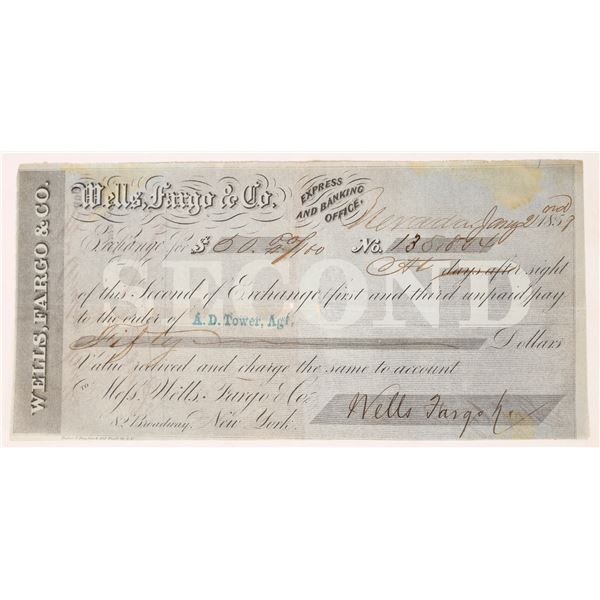 WELLS, FARGO & CO.
Wells, Fargo & Co.
EXPRESS
AND BANKING
OFFICE.
Nevada, Jany 2nd 1859
Exchange for $50.00/100 No.
At days after sight
SECOND
of this Second of Exchange (first and third unpaid) pay
to the order of A. D. Tower, Agt,
Fifty Dollars
Value received and charge the same to account
TO Mess. Wells, Fargo & Co.
82 Broadway, New York.
Wells Fargo &Co